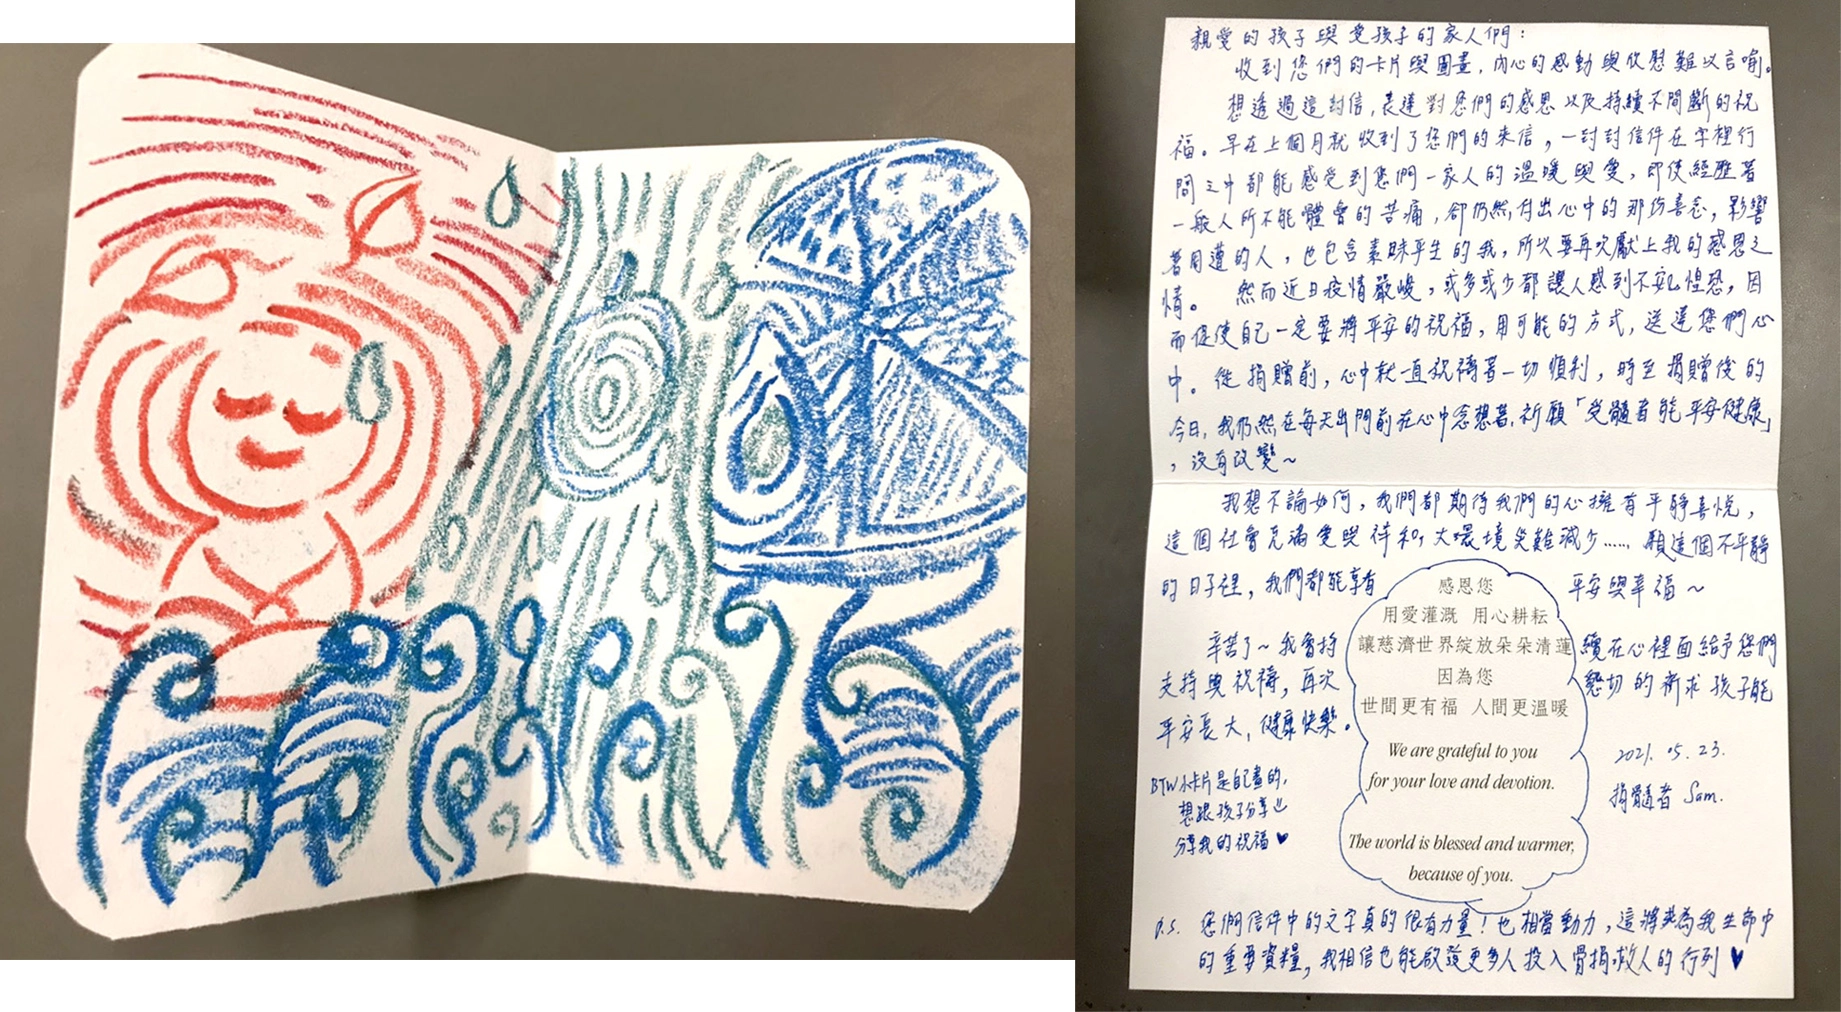 親愛的孩子與愛孩子的家人們：
收到您們的卡片與圖畫，內心的感動與欣慰難以言喻。
想透過這封信，表達對您們的感恩以及持續不間斷的祝
福。早在上個月就收到了您們的來信，一封封信件在字裡行
間之中都能感受到您們一家人的溫暖與愛，即使經歷著
一般人所不能體會的苦痛，卻仍然付出心中的那份善念，影響
著周遭的人，也包含素昧平生的我，所以要再次獻上我的感恩之
情。 然而近日疫情嚴峻，或多或少都讓人感到不安心惶恐，因
而促使自己一定要將平安的祝福，用可能的方式，送達您們心
中。從捐贈前，心中就一直祝禱著一切順利，時至捐贈後的
今日，我仍然在每天出門前在心中念想著，祈願「受髓者能平安健康」
，沒有改變~
我想不論如何，我們都期待我們的心擁有平靜喜悅，
這個社會充滿愛與祥和，大環境災難減少......，願這個不平靜
的日子裡，我們都能享有平安與幸福~
辛苦了~我會持續在心裡面給予您們
支持與祝禱，再次懇切的祈求孩子能
平安長大，健康快樂。
感恩您
用愛灌溉 用心耕耘
讓慈濟世界綻放朵朵清蓮
因為您
世間更有福 人間更溫暖
We are grateful to you
for your love and devotion.
The world is blessed and warmer,
because of you.
2021.05.23.
捐髓者 Sam.
BTW小卡片是自己畫的，
想跟孩子分享
分享我的祝福♥
P.S. 您們信件中的文字真的很有力量！也相當動力，這將成為我生命中
的重要資糧，我相信也能啟發更多人投入骨捐救人的行列♥